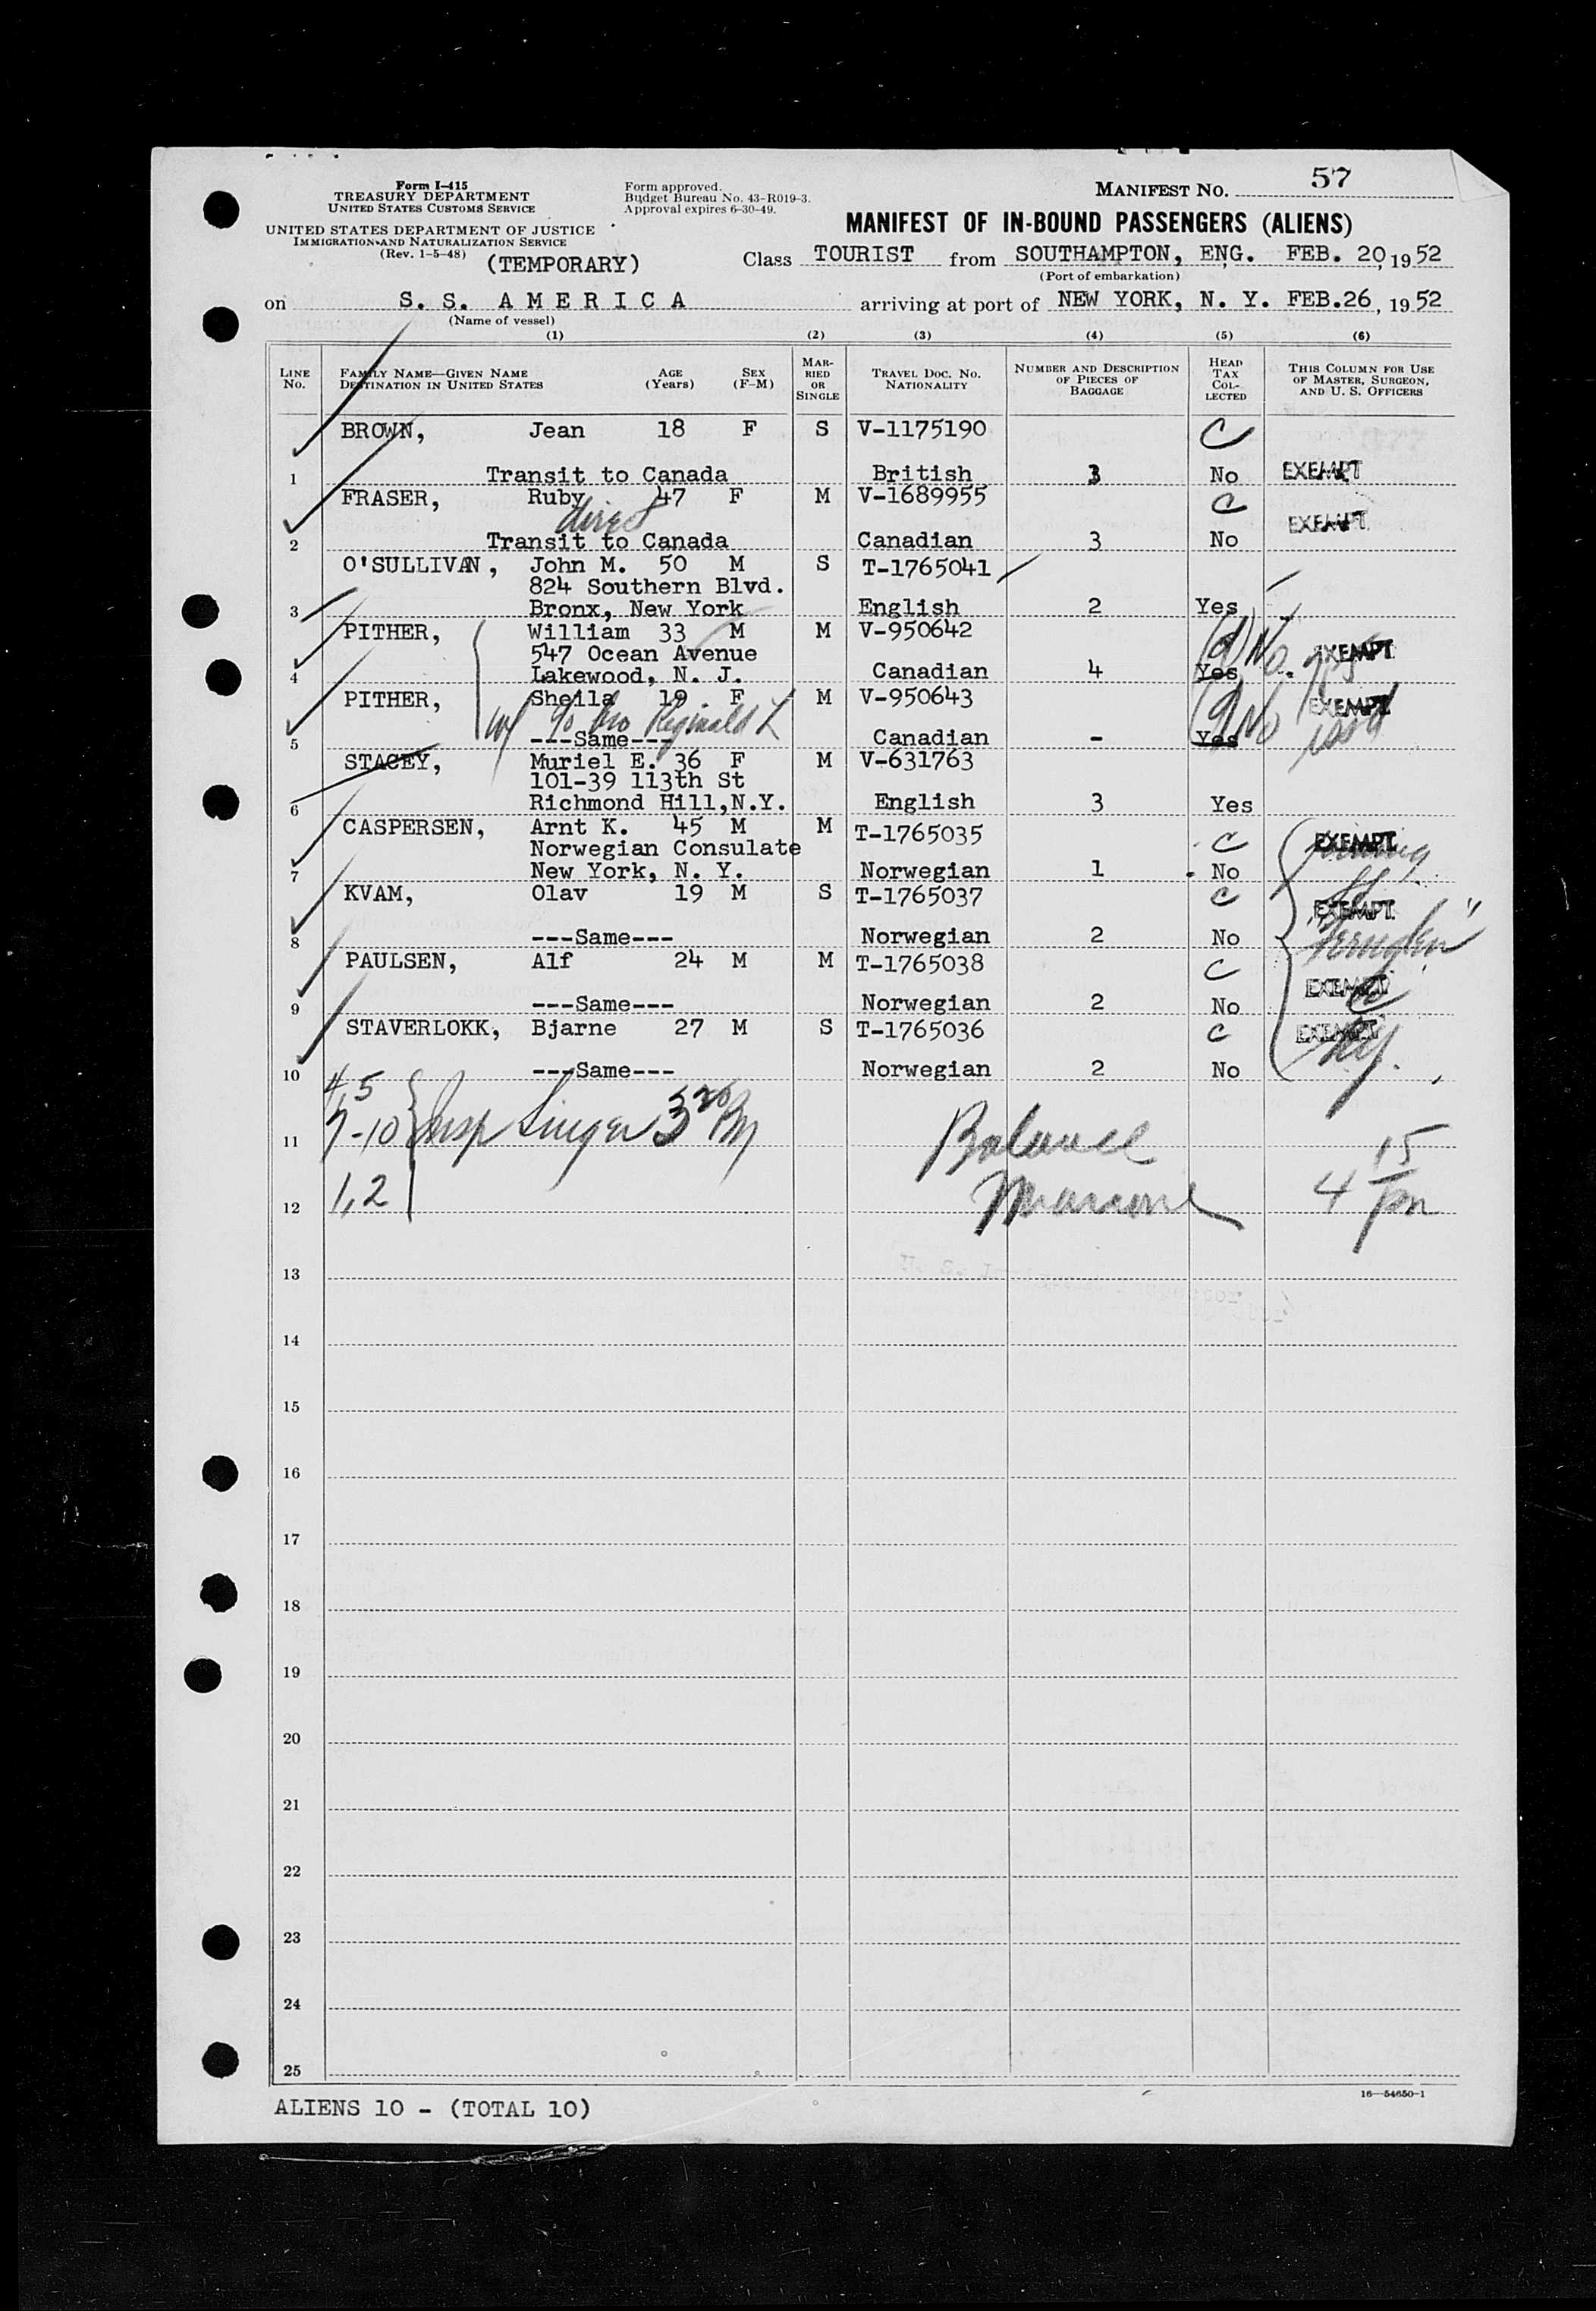 Form I-415
TREASURY DEPARTMENT
UNITED STATES CUSTOMS SERVICE
UNITED STATES DEPARTMENT OF JUSTICE
IMMIGRATION AND NATURALIZATION SERVICE
(Rev. 1-5-48)
(TEMPORARY)
Form approved.
Budget Bureau No. 43-R019-3.
Approval expires 6-30-49.
MANIFEST NO. 57
MANIFEST OF IN-BOUND PASSENGERS (ALIENS)
Class TOURIST from SOUTHAMPTON, ENG. FEB. 20, 1952
(Port of embarkation)
on S. S. AMERICA arriving at port of NEW YORK, N. Y. FEB.26, 1952
(Name of vessel)
(1) (2) (3) (4) (5) (6)
LINE NO. FAMILY NAME—GIVEN NAME DESTINATION IN UNITED STATES AGE (Years) SEX (F-M) MARRIED OR SINGLE TRAVEL DOC. NO. NATIONALITY NUMBER AND DESCRIPTION OF PIECES OF BAGGAGE HEAD TAX COLLECTED THIS COLUMN FOR USE OF MASTER, SURGEON, AND U. S. OFFICERS
BROWN, Jean 18 F S V-1175190 C
1 Transit to Canada British 3 No EXEMPT
FRASER, Ruby 47 F M V-1689955 C
direct EXEMPT
2 Transit to Canada Canadian 3 No
O'SULLIVAN, John M. 50 M S T-1765041
824 Southern Blvd.
3 Bronx, New York English 2 Yes
PITHER, William 33 M M V-950642
547 Ocean Avenue (d) No. EXEMPT
4 Lakewood, N. J. Canadian 4 Yes
PITHER, Sheila 19 F M V-950643 EXEMPT
w/ go bro Reginald L No
5 ---Same--- Canadian - Yes
STACEY, Muriel E. 36 F M V-631763
101-39 113th St
6 Richmond Hill,N.Y. English 3 Yes
CASPERSEN, Arnt K. 45 M M T-1765035 C EXEMPT
Norwegian Consulate
7 New York, N. Y. Norwegian 1 No
KVAM, Olav 19 M S T-1765037 C EXEMPT
8 ---Same--- Norwegian 2 No
PAULSEN, Alf 24 M M T-1765038 C EXEMPT
9 ---Same--- Norwegian 2 No
STAVERLOKK, Bjarne 27 M S T-1765036 C EXEMPT
10 ---Same--- Norwegian 2 No
4 5
11 7-10 Insp Singer 3 20 PM Balance 15
12 1,2 4 pm
13
14
15
16
17
18
19
20
21
22
23
24
25
ALIENS 10 - (TOTAL 10)
16—54650-1